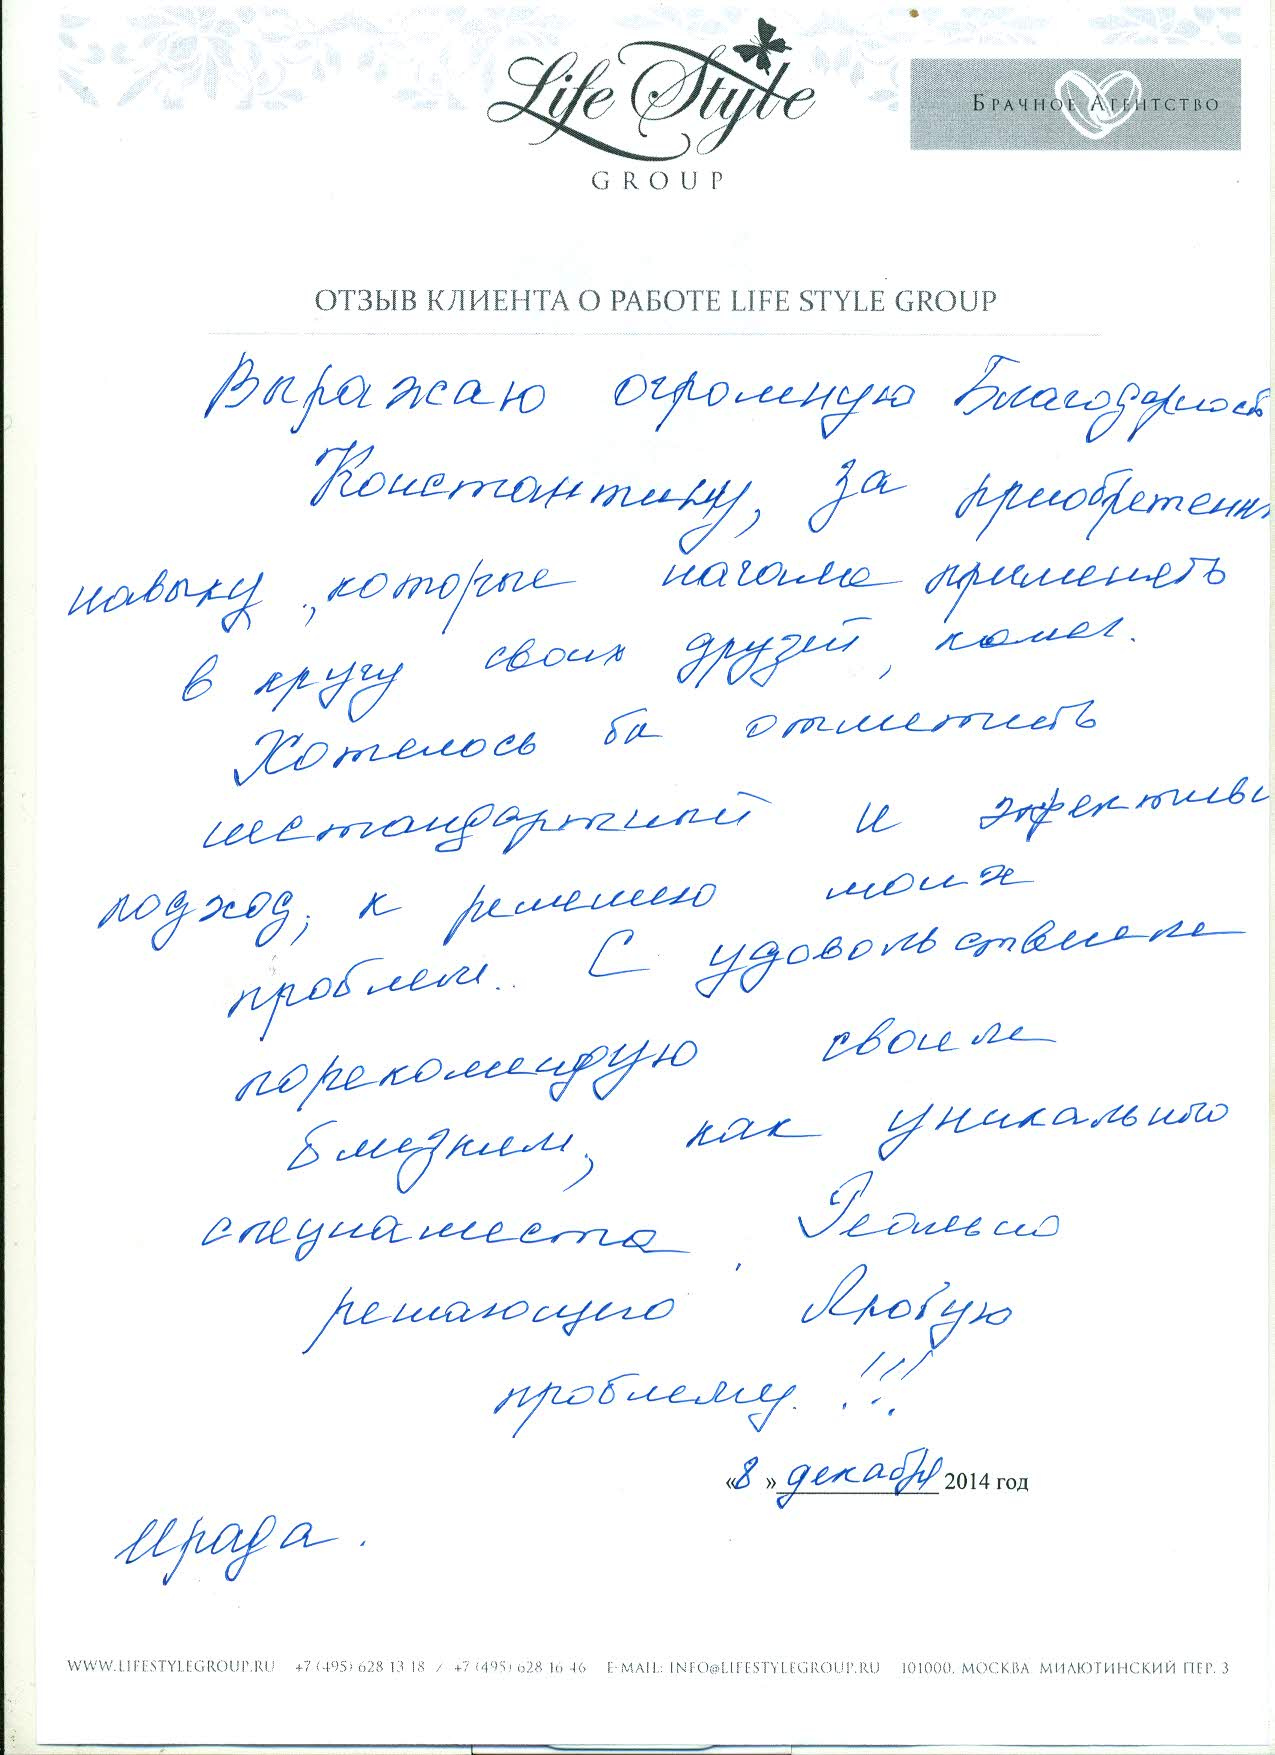 Life Style
GROUP
БРАЧНОЕ АГЕНТСТВО
ОТЗЫВ КЛИЕНТА О РАБОТЕ LIFE STYLE GROUP
Выражаю огромную Благодарность
Константину, за приобретенн
навыку, которые начала применять
в кругу своих друзей, колег.
Хотелось бы отметить
нестандартный и эфективн
подход, к решению моих
проблем.. С удовольствием
порекомендую своим
близким, как уникального
специалиста, Реально
решающего Любую
проблему. !!!
«8 » декабря 2014 год
Ирада.
WWW.LIFESTYLEGROUP.RU +7 (495) 628 13 18 / +7 (495) 628 16 46 E-MAIL: INFO@LIFESTYLEGROUP.RU 101000, МОСКВА МИЛЮТИНСКИЙ ПЕР. 3